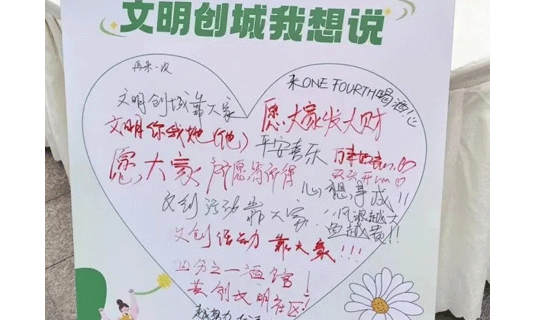 文明创城我想说
再来一次
来ONE FOURTH喝酒!
文明创城靠大家
愿大家发大财
文明你我她(他)
平安喜乐
万事如意!
愿大家所愿皆所得
天天开心
心想事成!!
文创活动靠大家
风浪越大
鱼越贵!!
文创活动靠大家!!!
四分之一酒馆!
共创文明社区!